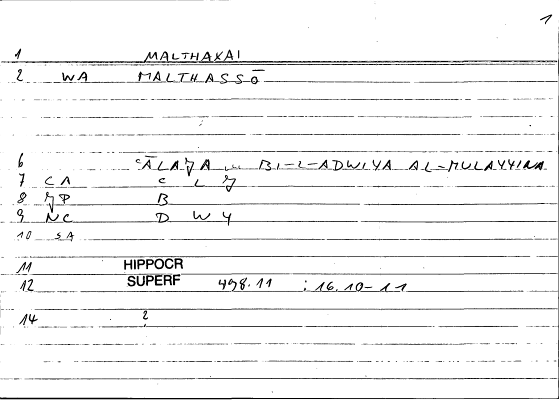 1
1 MALTHAKAI
2 WA MALTHASSŌ
6 ʿĀLAǦA ... BI-L-ADWIYA AL-MULAYYINA
7 CA ʿ L Ǧ
8 ǦP B
9 NC D W Y
10 SA
11 HIPPOCR
12 SUPERF 498.11 : 16.10-11
14 ?